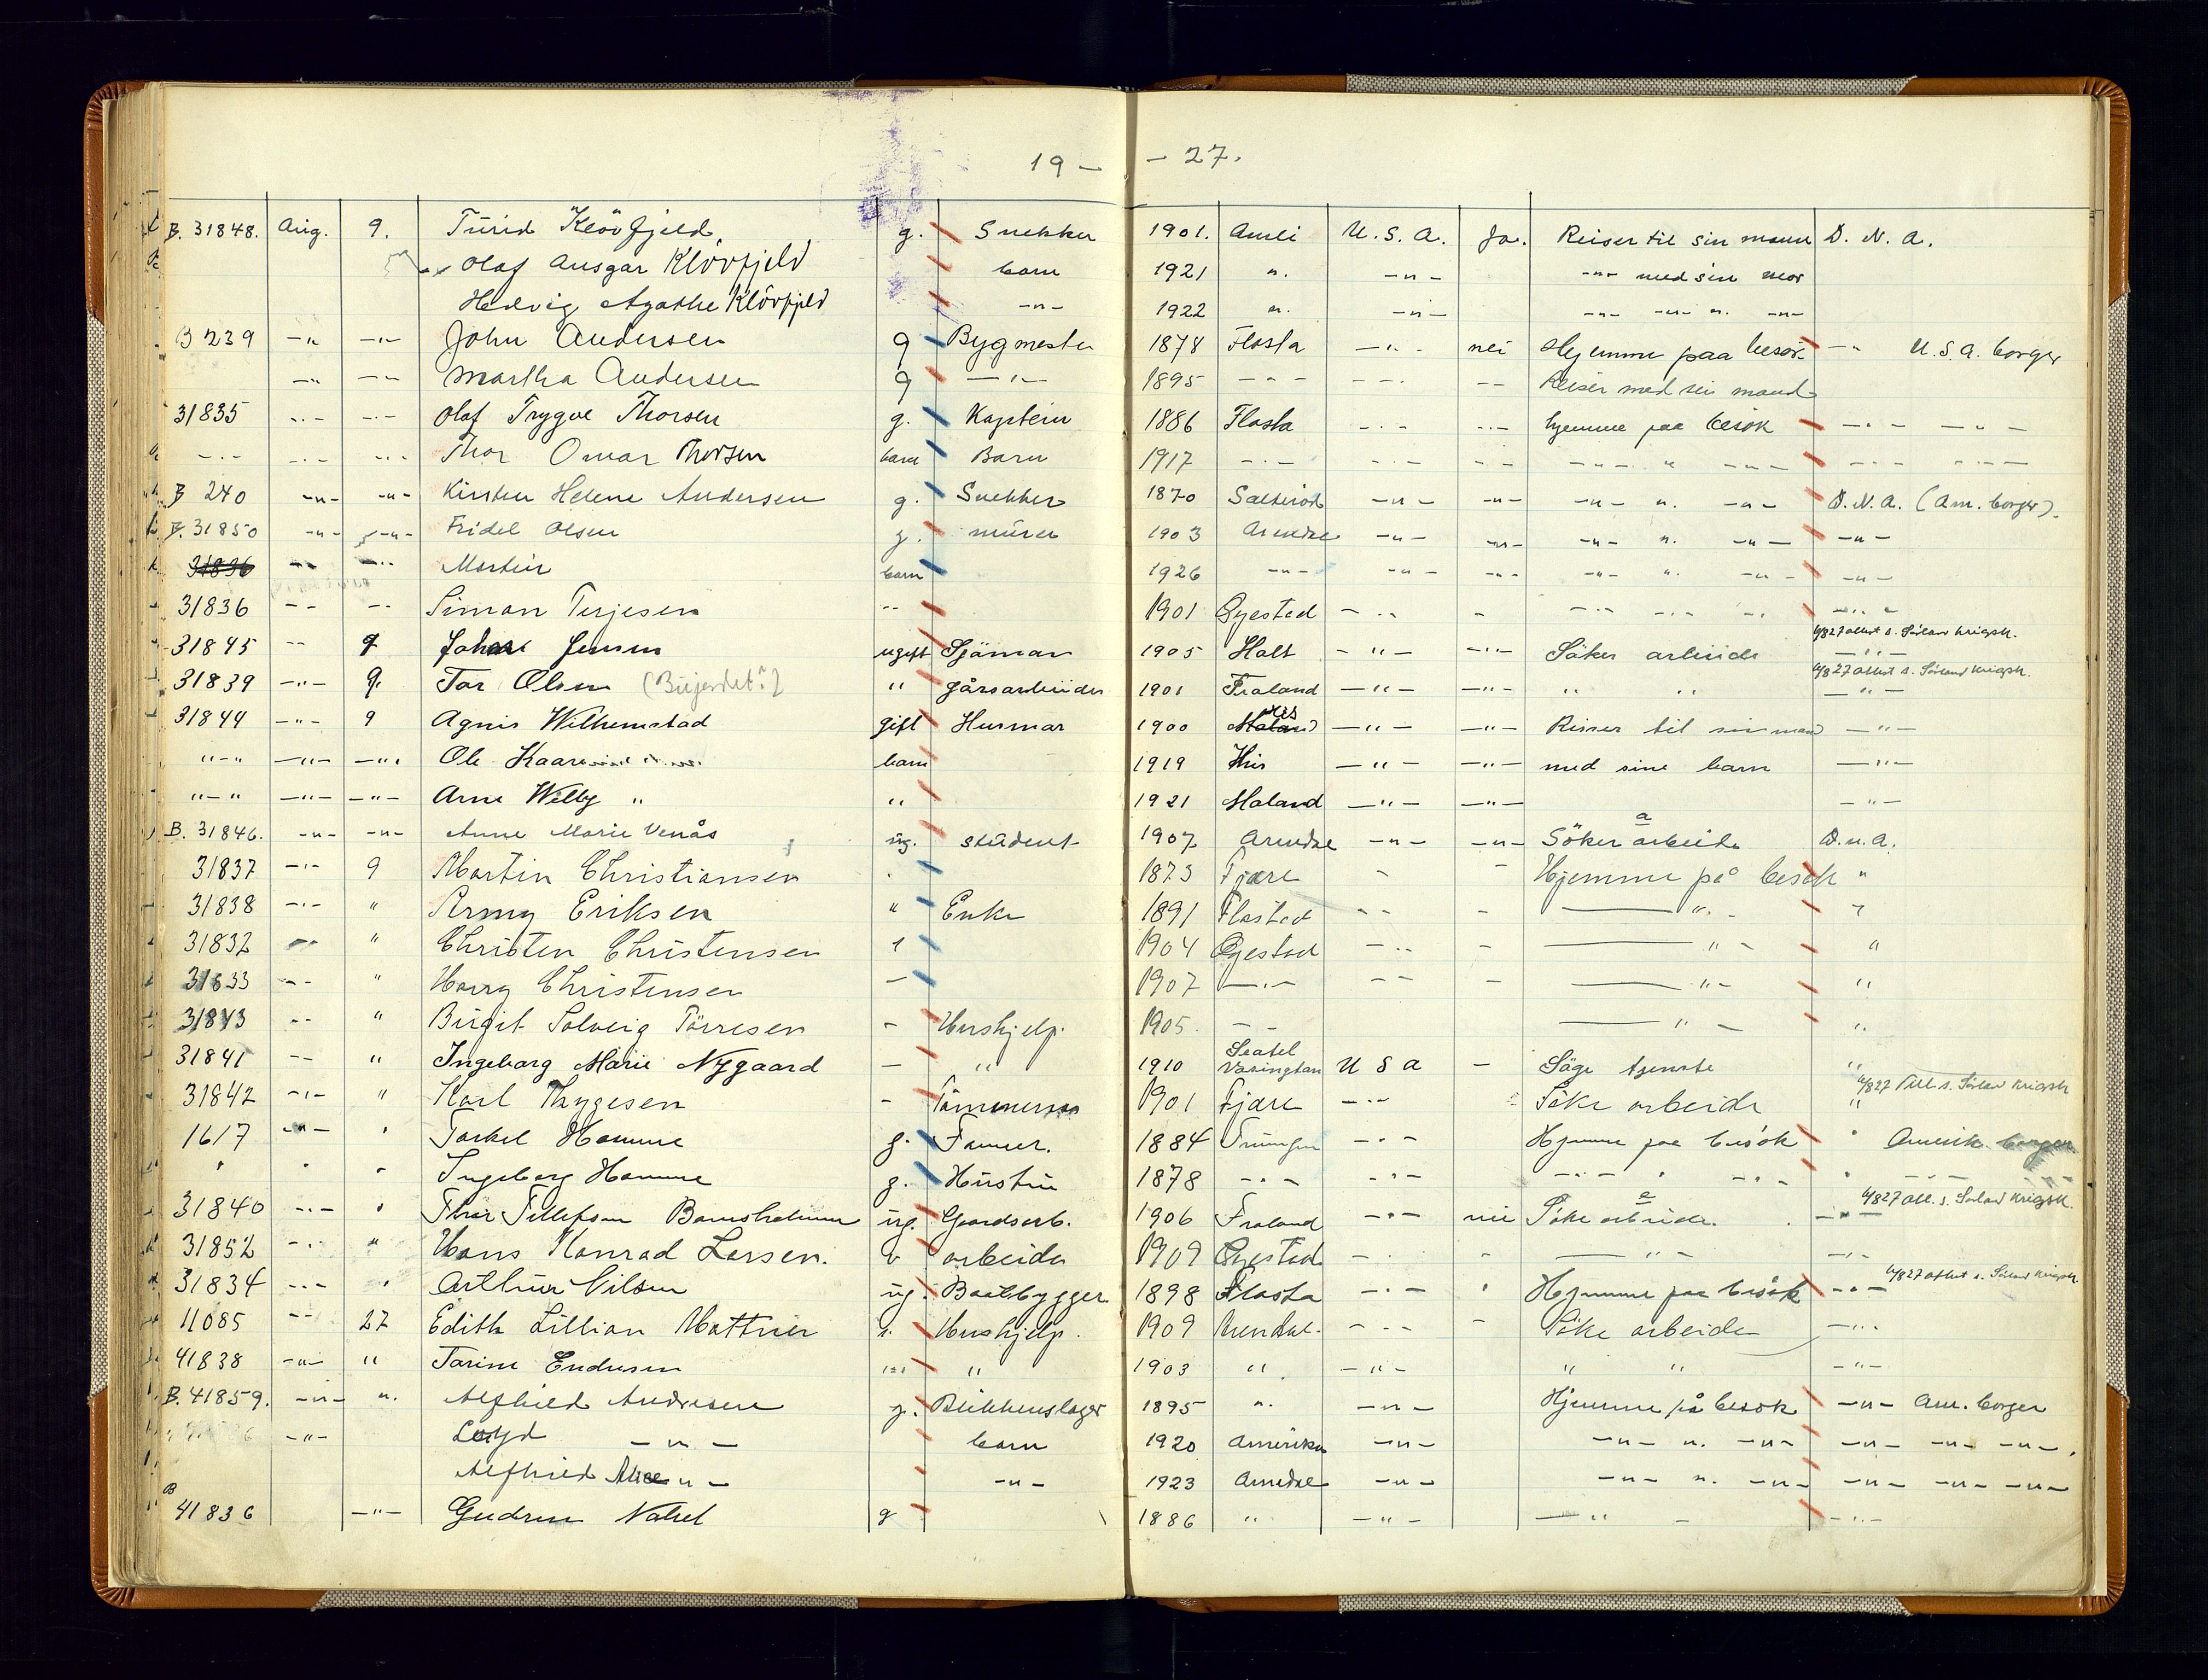 19 — — 27.
B. 31848. Aug. 9. Turid Klövfjeld, g. Snekker 1901. Amli U.S.A. Ja. Reiser til sin mann D.N.A.
Olaf Ansgar Klövfjeld barn 1921 " . —"— —"— med sin mor
Hedvig Agathe Klövfjeld —"— 1922 " . —"— —"— —"— " . —"—
B 239 —" —"— John Andersen g Bygmester 1878 Flosta —"- nei Hjemme paa besök —" U.S.A. borger
—" —"— Martha Andersen g —"— 1895 - - - - - - - - Reiser med sin mand
31835 -"- -"- Olaf Trygve Thorsen g. Kaptein 1886 Flosta -"- -"- hjemme paa besök -"- -"-
-"- -"- -"- Thor Omar Thorsen barn Barn 1917 -"- -"- - - -"- " -"- -"- -"-
B 240 —"— —"— Kirsten Helene Andersen g. Snekker 1870 Salteröd —"— —"— —"— " . —"— D.N.A. (Am. borger).
B. 31850 —"— —"— Fridel Olsen g. murer 1903 Arendal —"— —"— —"— " . —"— —"—
31836 — - —"- Martin barn 1926 —"— —"— —"— —"— " . —"— —"—
31836 - - - - Simon Terjesen - - 1901 Öyestad -"- - -"- -"- -"- -"-
31845 - - 9 Johan Jensen ugift Sjöman 1905 Holt -"- -"- Söker arbeide -"-
31839 -"- 9. Tor Olsen " gårsarbeider 1901 Froland —"— —"— " " —"—
31844 -"- 9 Agnis Wilhemstad gift Husmor 1900 His —"— —"— Reiser til sin man —"—
"-" —"— —"- Ole Kaare barn 1919 His —"— —"— med sine barn —"—
"-" —"— —"— Arne Willy " " 1921 Moland —"— —"— —"—
B. 31846. —"— —"— Anne Marie Venås ug. student 1907 Arendal —"— —"— Söker arbeide D.N.A.
31837 -"- 9 Martin Christiansen 1873 Fjære - - Hjemme på besök "
31838 -"- " Eriksen " Enke 1891 Flostad - - - —"- "
31832 - - " Christen Christensen 1904 Öyestad -"- - —"- "
31833 - - " Harry Christensen — 1907 —"- - - - —"- "
31843 - - " Birgit Solveig Törresen - Hushjelp. 1905. - - —"- "
31841 - - " Ingeborg Marie Nygaard — " 1910 Seatel Vasington U S A - Söge tjeneste "
31842 -"- " Karl Thygesen - Tömmerman 1901 Fjære -"- Söke arbeide "
1617 -"- " Torkel Homme g. Farmer. 1884 -"- Hjemme paa besök " Amerik. borger
" " " Ingeborg Homme g. Hustru 1878 -"- -"- -"- " -"- " -"-
31840 -"- " Thor Tellefsen ug. Gaardsarb. 1906 Froland -"- nei Söke arbeide. -"-
31852 -"- " Hans Konrad Larsen. arbeider 1909 Öyestad -"- " —"- -"-
31834 -"- " Arthur Nilsen ug. Baatbygger 1898 Flosta -"- " Hjemme paa besök -"-
11085 - - 27 Edith Lillian Hushjelp. 1909 Arendal. -"- - Söke arbeide -"-
41838 -"- " Torine Endresen " 1903 " -"- " " -"-
B. 41859. —"— " . Alfhild Andresen g. Blikkenslager 1895 " . —"— Hjemme på besök —"— Am. borger
-"- Loyd —"— barn 1920 Amerika —"— —"— " . —"— —"— —"— —"—.
Alfhild Alice —"— —"— 1923 Arendal —"— —"— " . —"— —"— —"— —"—
B 41836 —"— Gudrun g 1886 " -"- —"- -"-